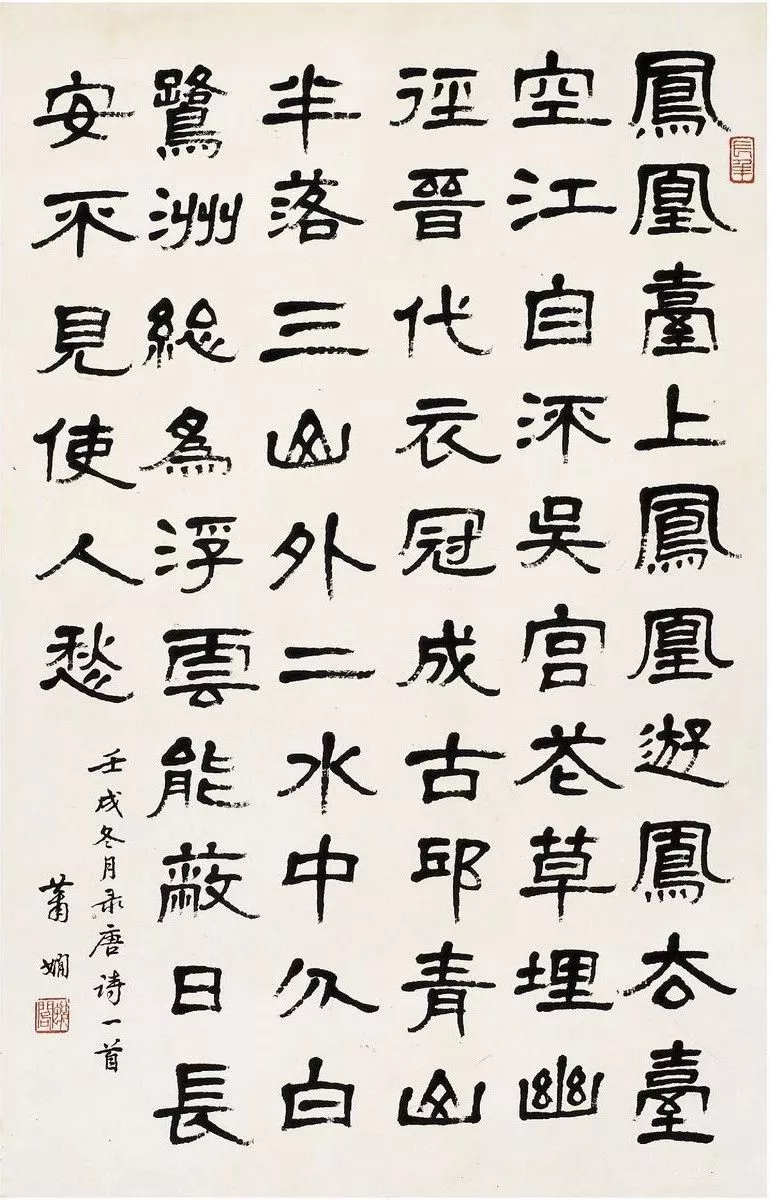 鳳凰臺上鳳凰遊鳳去臺
空江自流吳宮花草埋幽
徑晉代衣冠成古邱青山
半落三山外二水中分白
鷺洲總為浮雲能蔽日長
安不見使人愁
壬戌冬月录唐诗一首
蕭嫻
長年